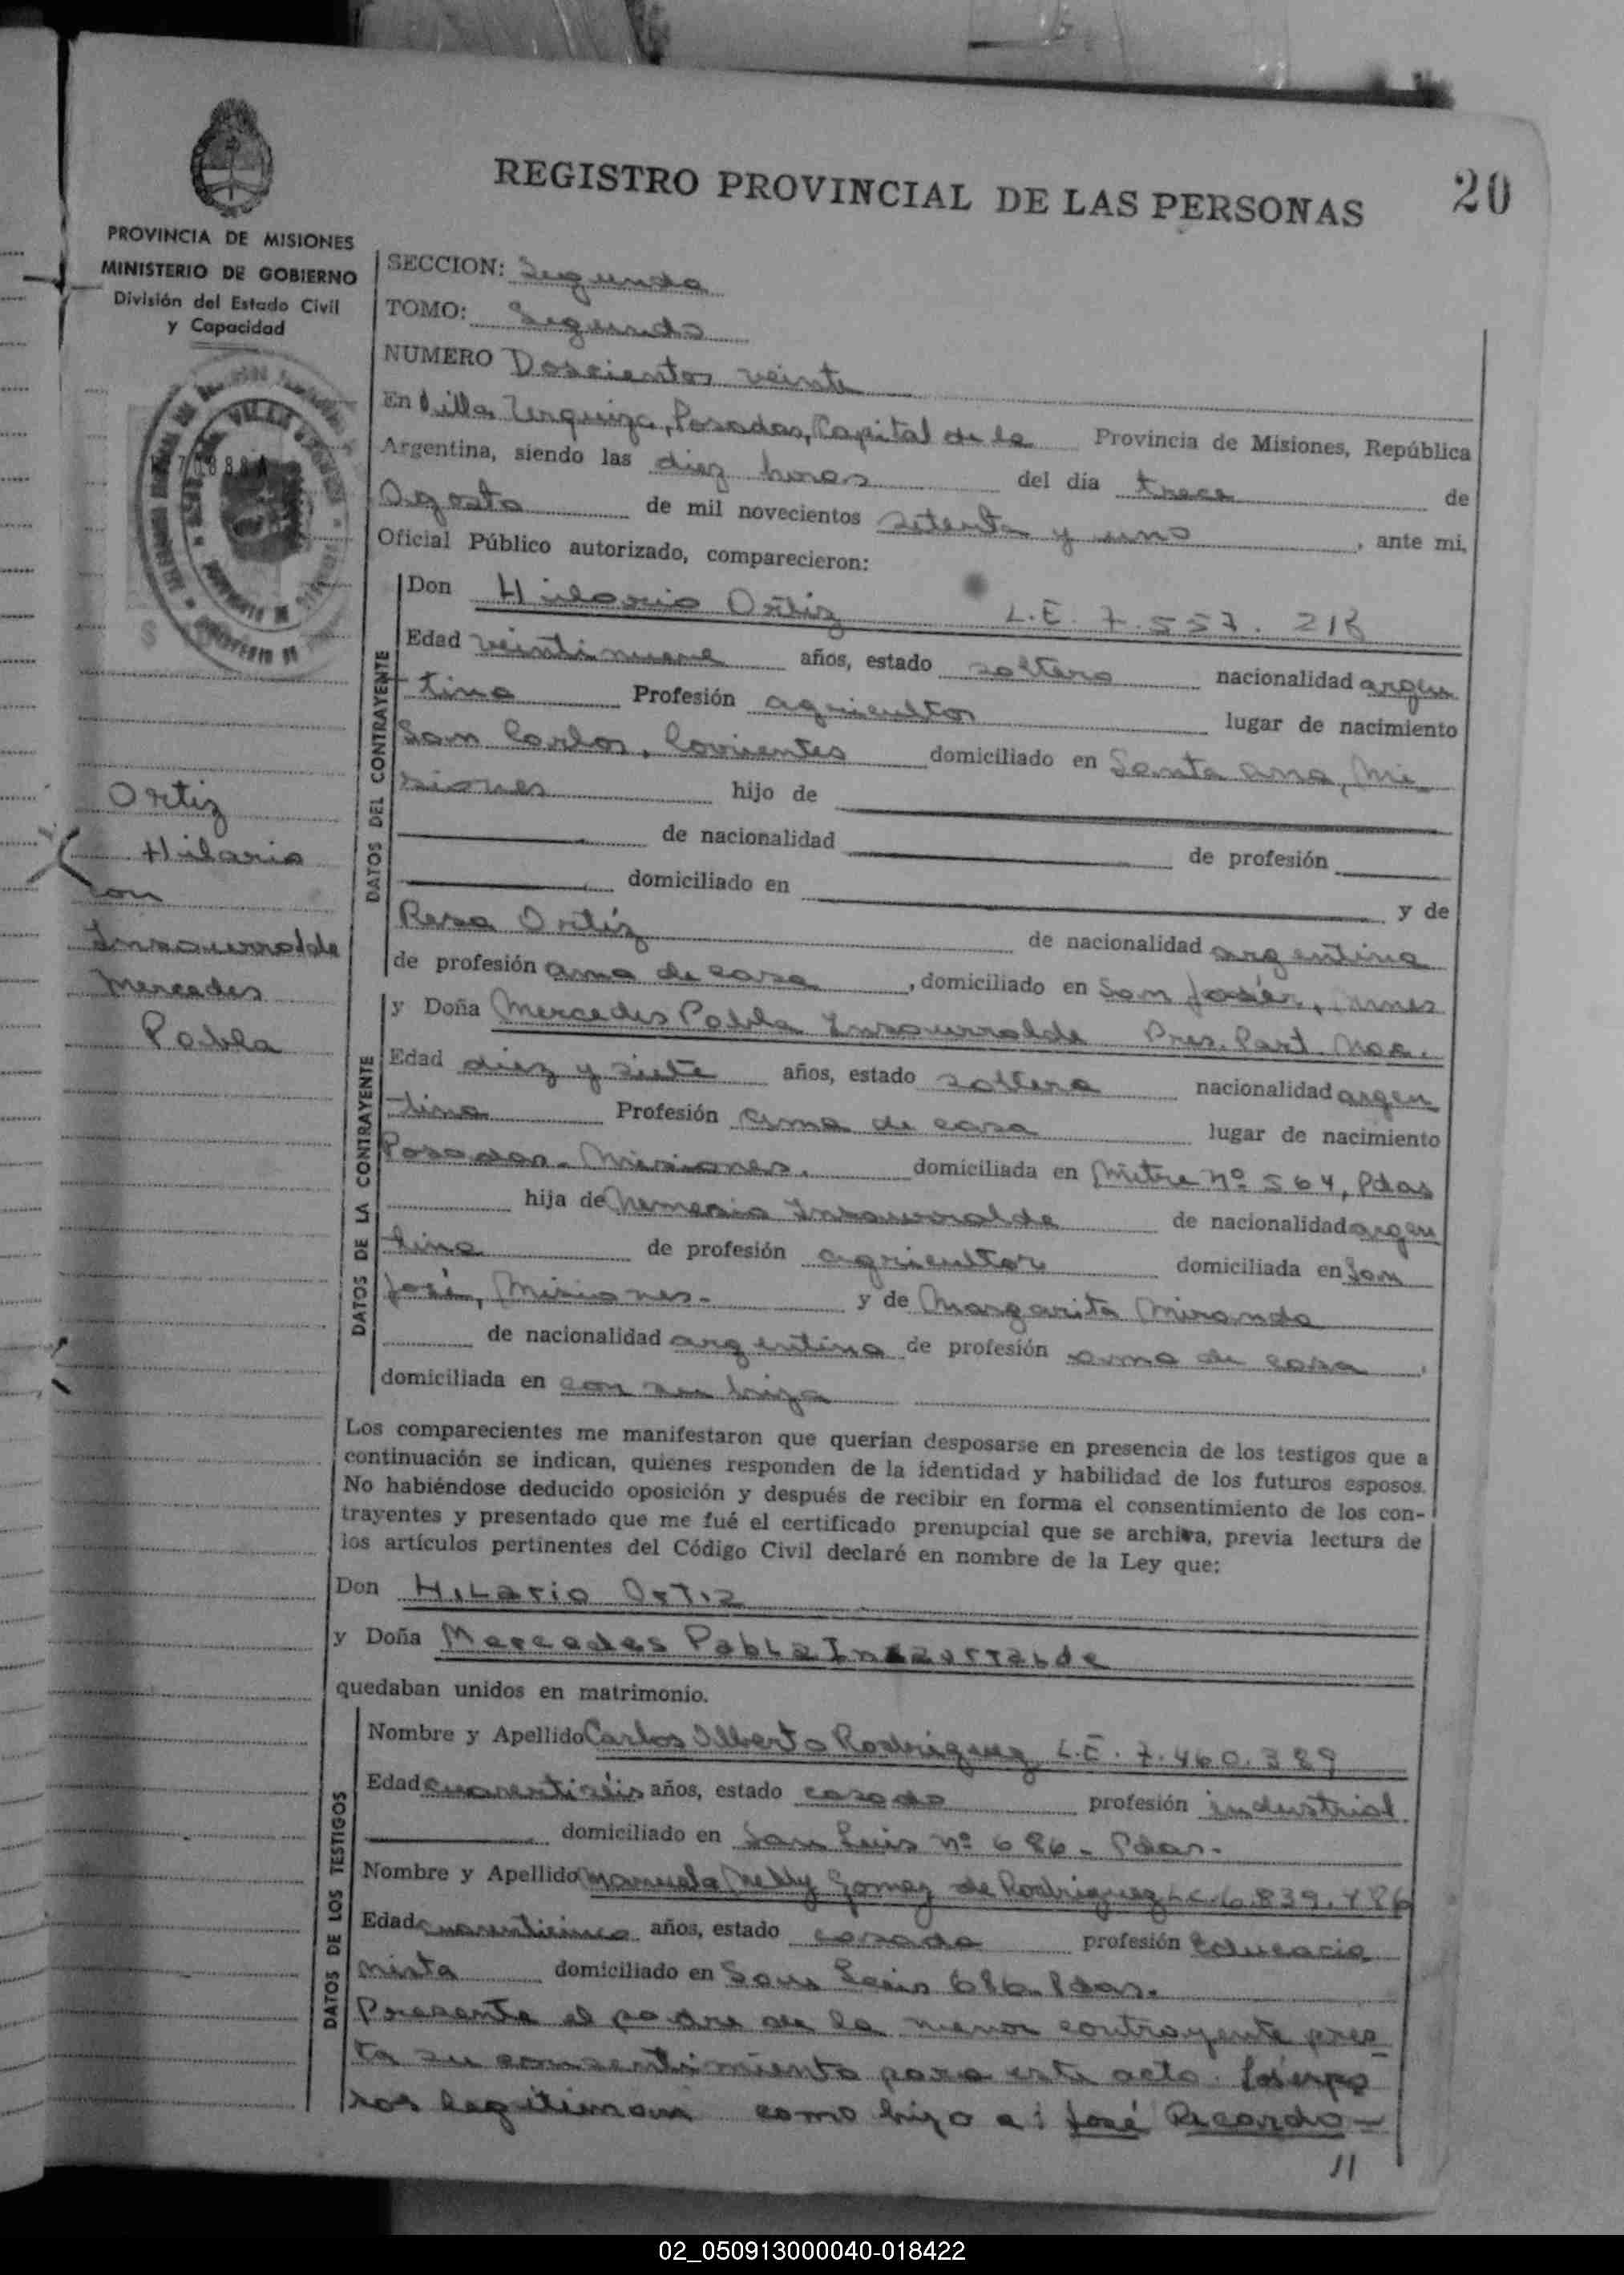 REGISTRO PROVINCIAL DE LAS PERSONAS
20
PROVINCIA DE MISIONES
MINISTERIO DE GOBIERNO
División del Estado Civil
y Capacidad
SECCION: Segunda
TOMO: Segundo
NUMERO Doscientos veinte
En Villa Urquiza, Posadas, Capital de la Provincia de Misiones, República
Argentina, siendo las diez horas del dia trece de
Agosto de mil novecientos setenta y uno, ante mi,
Oficial Público autorizado, comparecieron:
DATOS DEL CONTRAYENTE
Don Hilario Ortiz L.E. 7.557.218
Edad veintinueve años, estado soltero nacionalidad argen
tina Profesión agricultor lugar de nacimiento
San Carlos, Corrientes domiciliado en Santa Ana, Mi
siones hijo de
de nacionalidad de profesión
domiciliado en y de
Rosa Ortiz de nacionalidad argentina
de profesión ama de casa, domiciliado en San José,
Ortiz
Hilario
con
Insaurralde
Mercedes
Pabla
DATOS DE LA CONTRAYENTE
y Doña Mercedes Pabla Insaurralde Pres. Part. Nac.
Edad diez y siete años, estado soltera nacionalidad argen
tina Profesión ama de casa lugar de nacimiento
Posadas - Misiones. domiciliada en Mitre Nº 564, Pdas
hija de Nemesio Insaurralde de nacionalidad argen
tina de profesión agricultor domiciliada en San
José, Misiones.- y de Margarita Miranda
de nacionalidad argentina de profesión ama de casa,
domiciliada en con su hija
Los comparecientes me manifestaron que querian desposarse en presencia de los testigos que a
continuación se indican, quienes responden de la identidad y habilidad de los futuros esposos.
No habiéndose deducido oposición y después de recibir en forma el consentimiento de los con-
trayentes y presentado que me fué el certificado prenupcial que se archiva, previa lectura de
los artículos pertinentes del Código Civil declaré en nombre de la Ley que:
Don HiLario OrTiz
y Doña Mercedes PabLa InsaurraLde
quedaban unidos en matrimonio.
DATOS DE LOS TESTIGOS
Nombre y Apellido Carlos Alberto Rodriguez L.E. 7.460.389
Edad cuarentiséis años, estado casado profesión industrial
domiciliado en San Luis nº 686 - Pdas.-
Nombre y Apellido Manuela Nelly Gomez de Rodriguez L.C. 6.839.486
Edad cuarenticinco años, estado casada profesión Educacio
nista domiciliado en San Luis 686. Pdas.
Presente el padre de la menor contrayente pres
ta su consentimiento para este acto. Los espo
sos legitiman como hijo a: José Ricardo -
//
02_050913000040-018422